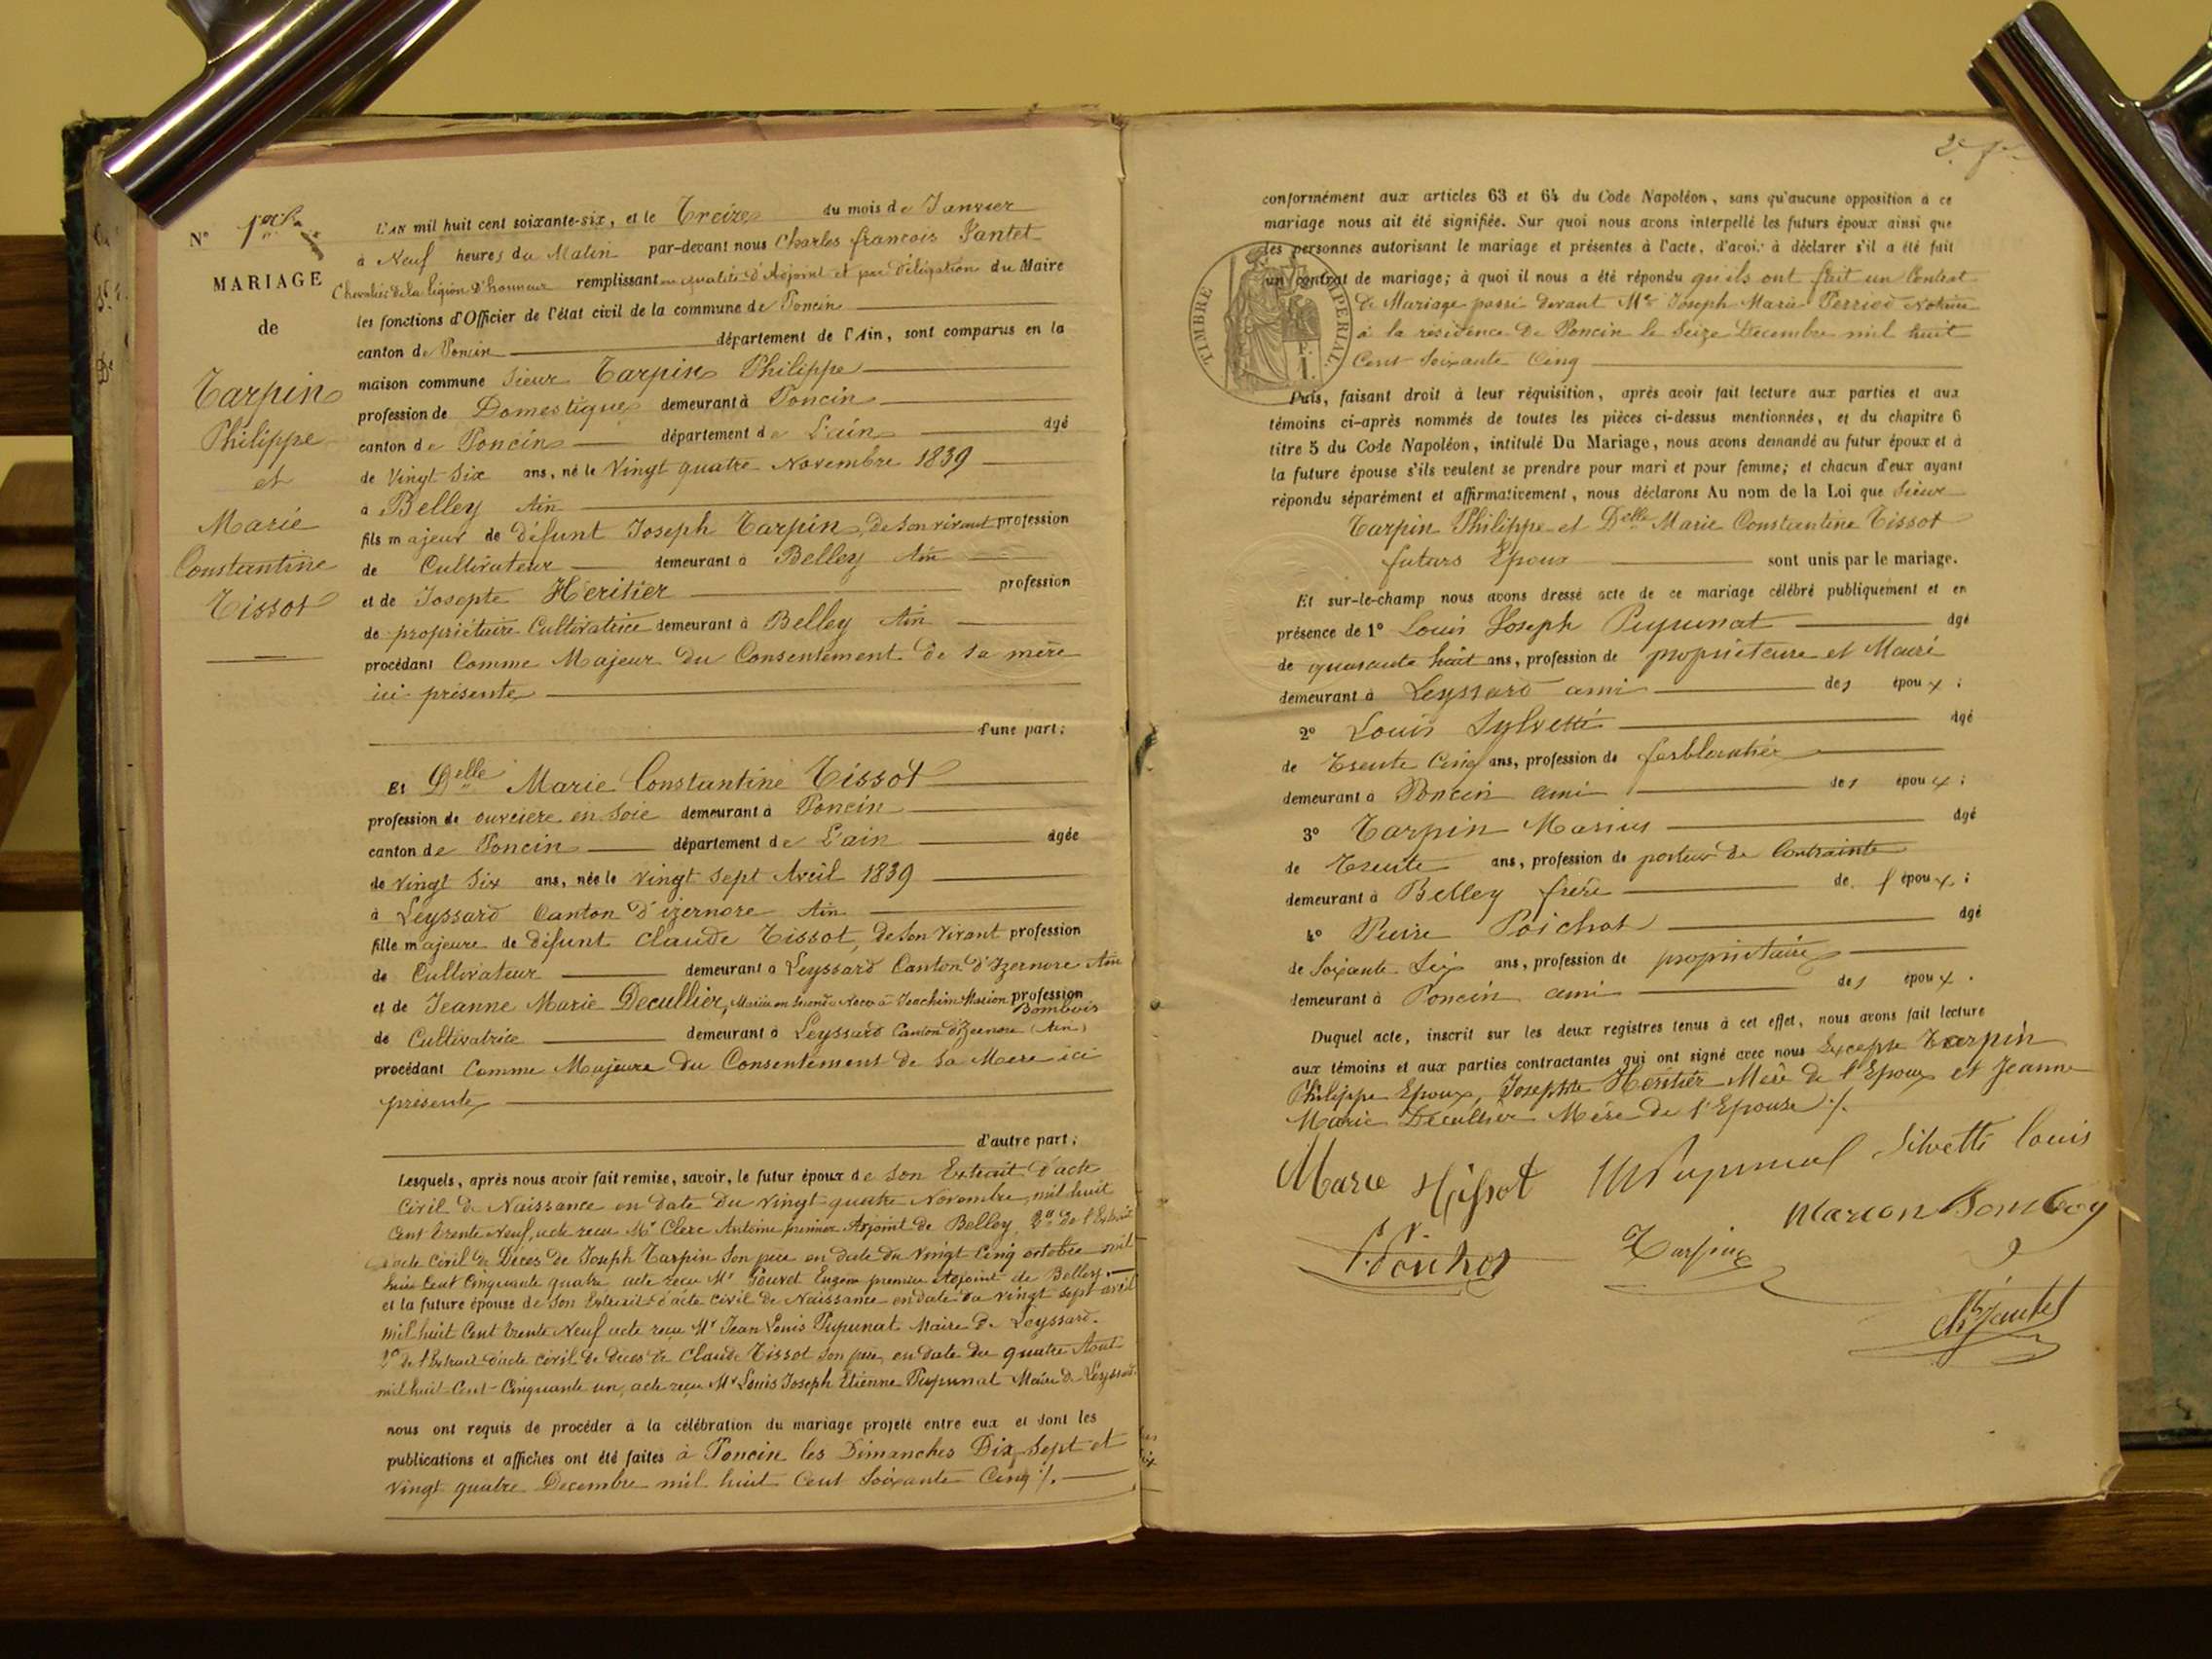 N° 1er
MARIAGE
de
Tarpin
Philippe
et
Marie
Constantine
Tissot
L'AN mil huit cent soixante-six, et le Treize du mois de Janvier
à Neuf heures du Matin par-devant nous Charles françois Jantet
Chevalier de la légion d'honneur remplissant en qualité d'Adjoint et par délégation du Maire
les fonctions d'Officier de l'état civil de la commune de Poncin
canton de Poncin département de l'Ain, sont comparus en la
maison commune Sieur Tarpin Philippe
profession de Domestique demeurant à Poncin
canton de Poncin département de L'ain âgé
de Vingt Six ans, né le Vingt quatre Novembre 1839
à Belley Ain
fils majeur de défunt Joseph Tarpin, de son vivant profession
de Cultivateur demeurant à Belley Ain
et de Josepte Héritier profession
de propriétaire Cultivatrice demeurant à Belley Ain
procédant Comme Majeur du Consentement de sa mère
ici présente
d'une part;
Et Delle Marie Constantine Tissot
profession de ouvrière en Soie demeurant à Poncin
canton de Poncin département de L'ain âgée
de Vingt Six ans, née le Vingt Sept Avril 1839
à Leyssard Canton d'izernore Ain
fille majeure de défunt Claude Tissot, de son vivant profession
de Cultivateur demeurant à Leyssard Canton d'Izernore Ain
et de Jeanne Marie Decullier, Mariée en seconde Noces à Joachim Marion Bombois profession
de Cultivatrice demeurant à Leyssard Canton d'Izernore (Ain)
procédant Comme Majeure du Consentement de Sa Mere ici
présente
d'autre part;
Lesquels, après nous avoir fait remise, savoir, le futur époux de son Extrait d'acte
Civil de Naissance en date du vingt quatre Novembre mil huit
Cent trente Neuf, acte reçu Mr Clerc Antoine premier Adjoint de Belley, 2° de l'Extrait
d'acte civil de Décès de Joseph Tarpin Son père en date du vingt Cinq octobre mil
huit Cent Cinquante quatre acte reçu Mr Gouvet Eugène premier Adjoint de Belley.
et la future épouse de Son Extrait d'acte civil de Naissance en date du vingt sept avril
mil huit Cent trente Neuf acte reçu Mr Jean Louis Pupunat Maire de Leyssard.
2° de l'Extrait d'acte civil de décès de Claude Tissot Son père, en date du quatre Aout
mil huit Cent Cinquante un, acte reçu Mr Louis Joseph Etienne Pupunat Maire de Leyssard.
nous ont requis de procéder à la célébration du mariage projeté entre eux et dont les
publications et affiches ont été faites à Poncin les Dimanches Dix Sept et
Vingt quatre Decembre mil huit Cent Soixante Cinq ./.
conformément aux articles 63 et 64 du Code Napoléon, sans qu'aucune opposition à ce
mariage nous ait été signifiée. Sur quoi nous avons interpellé les futurs époux ainsi que
les personnes autorisant le mariage et présentes à l'acte, d'avoir à déclarer s'il a été fait
un contrat de mariage; à quoi il nous a été répondu qu'ils ont fait un Contrat
de Mariage passé devant Me Joseph Marie Perriod Notaire
à la résidence de Poncin le Seize Décembre mil huit
Cent Soixante Cinq
TIMBRE IMPERIAL
F.
1.
Puis, faisant droit à leur réquisition, après avoir fait lecture aux parties et aux
témoins ci-après nommés de toutes les pièces ci-dessus mentionnées, et du chapitre 6
titre 5 du Code Napoléon, intitulé Du Mariage, nous avons demandé au futur époux et à
la future épouse s'ils veulent se prendre pour mari et pour femme; et chacun d'eux ayant
répondu séparément et affirmativement, nous déclarons Au nom de la Loi que Sieur
Tarpin Philippe et Delle Marie Constantine Tissot
futurs Epoux sont unis par le mariage.
Et sur-le-champ nous avons dressé acte de ce mariage célébré publiquement et en
présence de 1° Louis Joseph Pupunat âgé
de quarante huit ans, profession de propriétaire et Maire
demeurant à Leyssard ami des époux;
2° Louis Sylvetti âgé
de Trente Cinq ans, profession de ferblantier
demeurant à Poncin ami des époux;
3° Tarpin Marius âgé
de Trente ans, profession de porteur de Contrainte
demeurant à Belley frère de l'époux;
4° Pierre Poichot âgé
de Soixante Six ans, profession de propriétaire
demeurant à Poncin ami des époux.
Duquel acte, inscrit sur les deux registres tenus à cet effet, nous avons fait lecture
aux témoins et aux parties contractantes qui ont signé avec nous Excepté Tarpin
Philippe Epoux, Josephte Héritier Mère de l'Epoux et Jeanne
Marie Décullier Mère de l'Epouse ./.
Marie Tissot Pupunat Silvetti louis
P. Poichot Tarpin Marion Bomboy
Ch Jantet